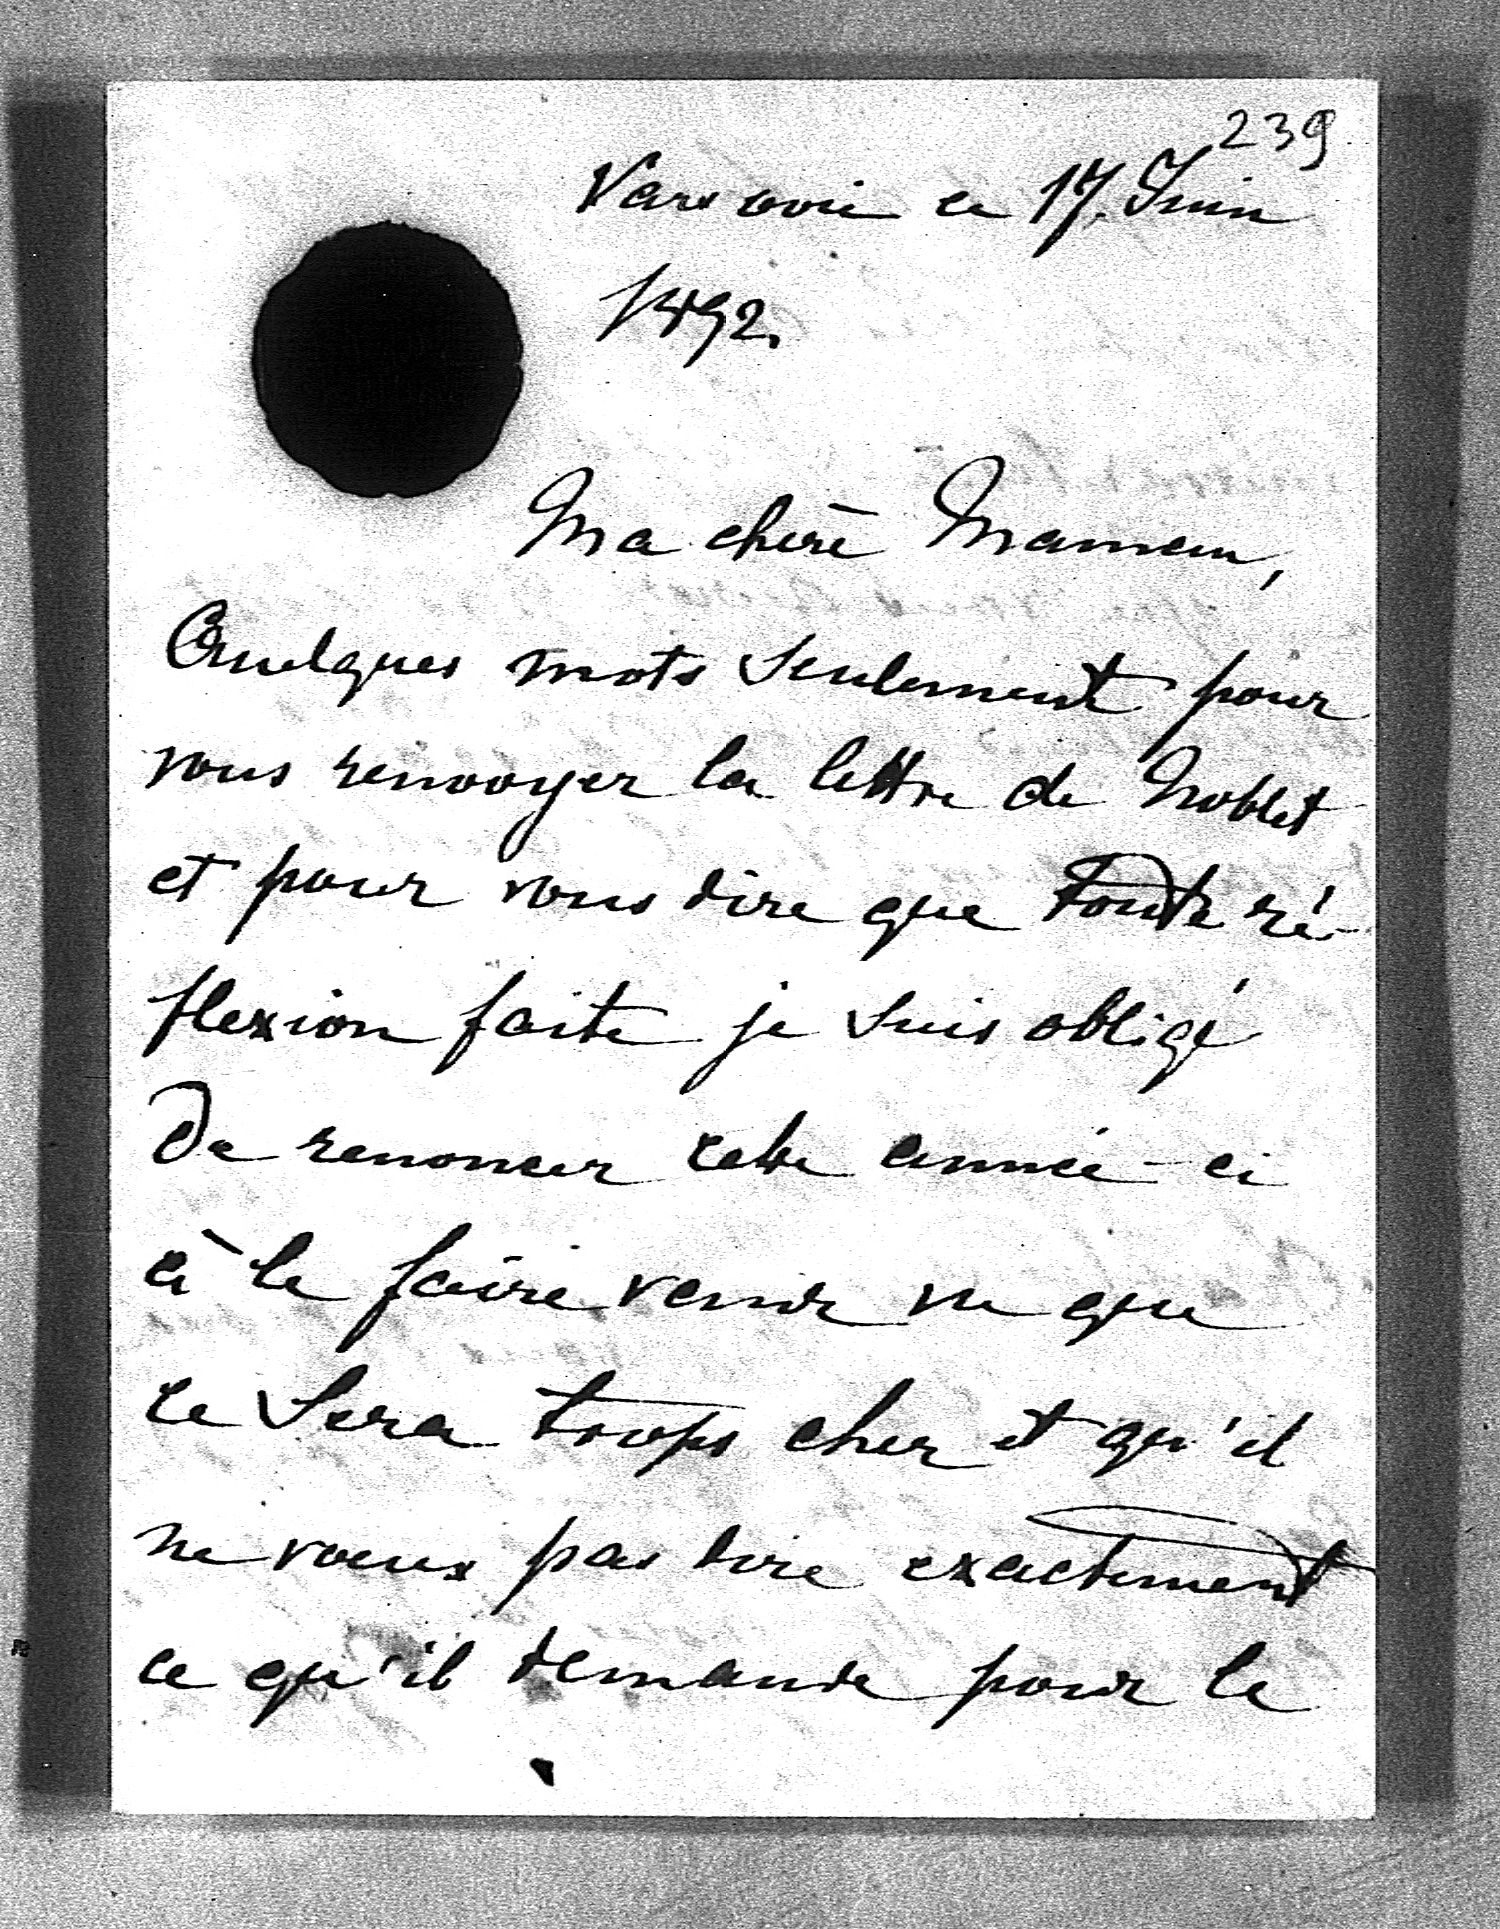 239
Varsovie ce 17. Juin
1892.
Ma chère Maman,
Quelques mots seulement pour
vous renvoyer la lettre de Noblet
et pour vous dire que toute ré-
flexion faite je suis obligé
de renoncer cette année-ci
à le faire venir vu que
ce sera trops cher et qu'il
ne voeux pas dire exactement
ce qu'il demande pour le